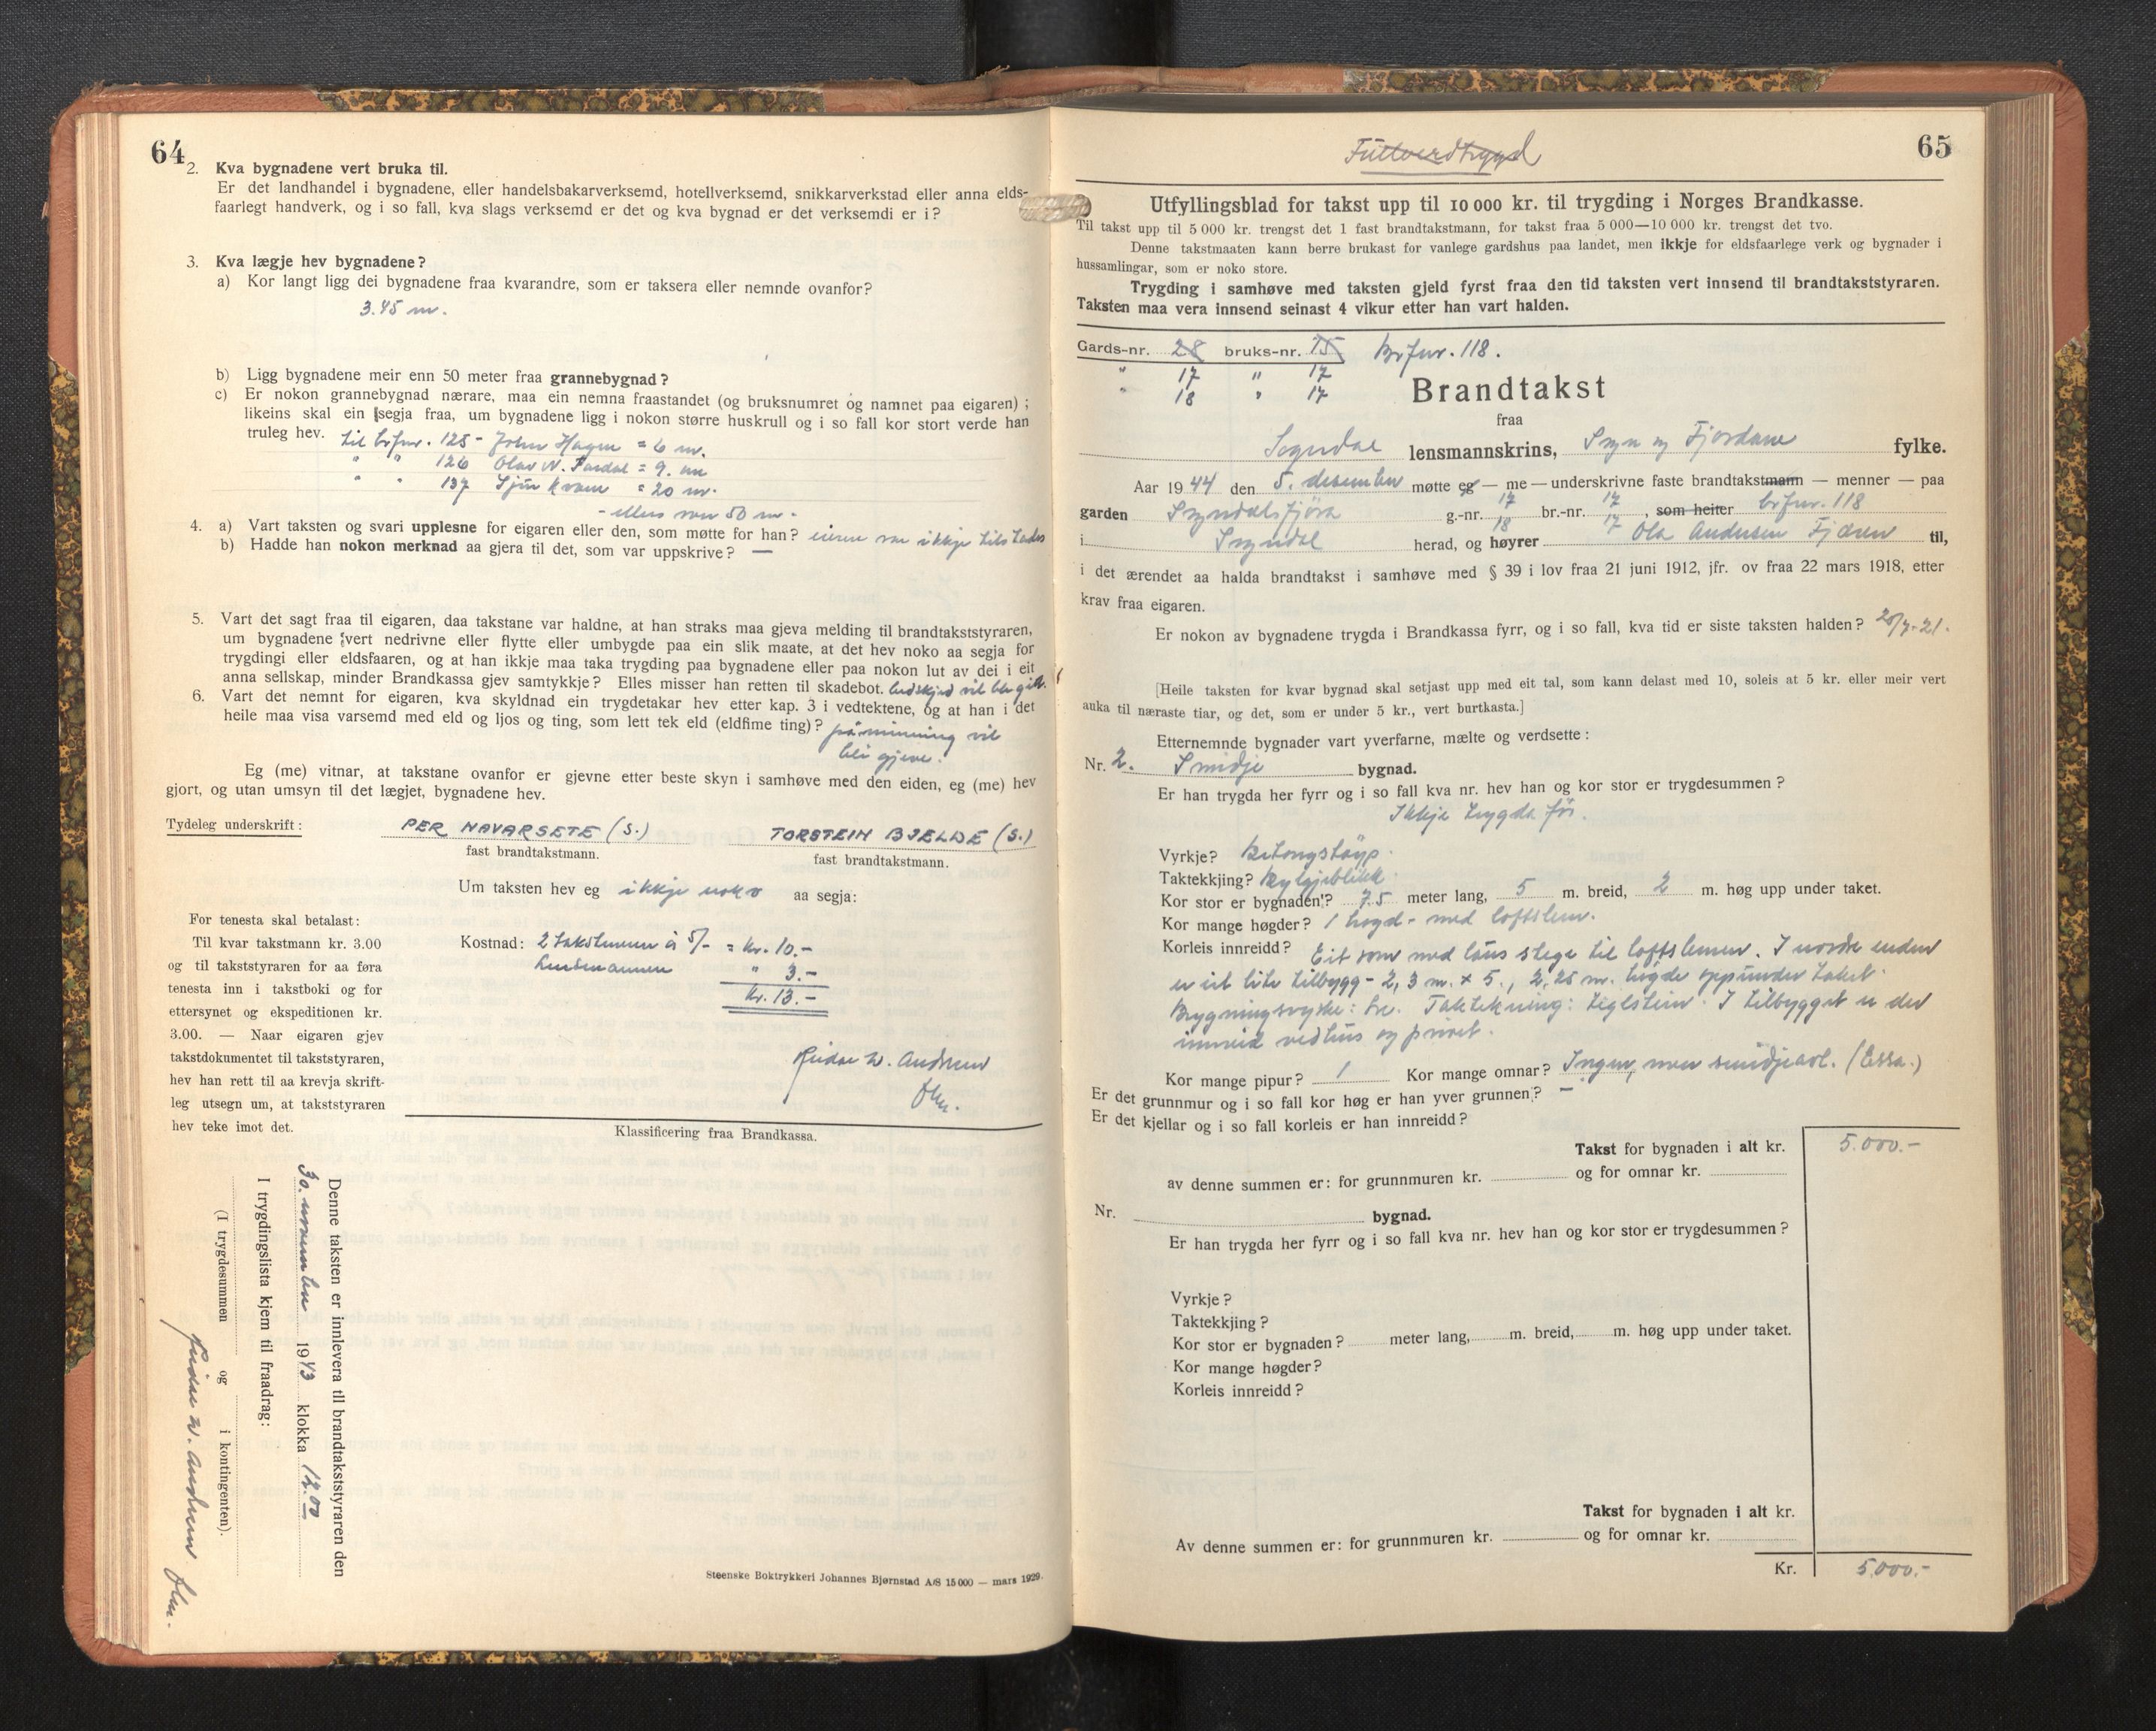 64
2. Kva bygnadene vert bruka til.
Er det landhandel i bygnadene, eller handelsbakarverksemd, hotellverksemd, snikkarverkstad eller anna elds-
faarlegt handverk, og i so fall, kva slags verksemd er det og kva bygnad er det verksemdi er i?
3. Kva lægje hev bygnadene?
a) Kor langt ligg dei bygnadene fraa kvarandre, som er taksera eller nemnde ovanfor?
3.45 m.
b) Ligg bygnadene meir enn 50 meter fraa grannebygnad?
c) Er nokon grannebygnad nærare, maa ein nemna fraastandet (og bruksnumret og namnet paa eigaren);
likeins skal ein segja fraa, um bygnadene ligg i nokon større huskrull og i so fall kor stort verde han
truleg hev. til brfnr. 125 - John Hagen = 6 m.
" " 126 Olav N. Fardal = 9. m
" " 137 Sjur Kvam = 20 m.
- ellers over 50 m -
4. a) Vart taksten og svari upplesne for eigaren eller den, som møtte for han? eieren var ikkje tilstades
b) Hadde han nokon merknad aa gjera til det, som var uppskrive? —
5. Vart det sagt fraa til eigaren, daa takstane var haldne, at han straks maa gjeva melding til brandtakststyraren,
um bygnadene vert nedrivne eller flytte eller umbygde paa ein slik maate, at det hev noko aa segja for
trygdingi eller eldsfaaren, og at han ikkje maa taka trygding paa bygnadene eller paa nokon lut av dei i eit
anna sellskap, minder Brandkassa gjev samtykkje? Elles misser han retten til skadebot. beskjed vil bli gitt.
6. Vart det nemnt for eigaren, kva skyldnad ein trygdetakar hev etter kap. 3 i vedtektene, og at han i det
heile maa visa varsemd med eld og ljos og ting, som lett tek eld (eldfime ting)? påminning vil
bli gjeve.
Eg (me) vitnar, at takstane ovanfor er gjevne etter beste skyn i samhøve med den eiden, eg (me) hev
gjort, og utan umsyn til det lægjet, bygnadene hev.
Tydeleg underskrift: PER NAVARSETE (S.) TORSTEIN BJELDE (S.)
fast brandtakstmann. fast brandtakstmann.
Um taksten hev eg ikkje noko aa segja:
For tenesta skal betalast:
Til kvar takstmann kr. 3.00
og til takststyraren for aa føra
tenesta inn i takstboki og for
ettersynet og ekspeditionen kr.
3.00. — Naar eigaren gjev
takstdokumentet til takststyraren,
hev han rett til aa krevja skrift-
leg utsegn um, at takststyraren
hev teke imot det.
Kostnad: 2 takstmenn à 5/- = kr. 10.-
Lensmannen " 3.-
kr. 13.-
Reidar W. Andresen
flm.
Klassificering fraa Brandkassa.
Denne taksten er innlevera til brandtakststyraren den
30. november 1943 klokka 12.00
I trygdingslista kjem til fraadrag:
(I trygdesummen og i kontingenten).
Reidar W. Andresen flm.
Steenske Boktrykkeri Johannes Bjørnstad A/S 15 000 — mars 1929.
65
Fullverdtrygd
Utfyllingsblad for takst upp til 10 000 kr. til trygding i Norges Brandkasse.
Til takst upp til 5 000 kr. trengst det 1 fast brandtakstmann, for takst fraa 5 000—10 000 kr. trengst det tvo.
Denne takstmaaten kann berre brukast for vanlege gardshus paa landet, men ikkje for eldsfaarlege verk og bygnader i
hussamlingar, som er noko store.
Trygding i samhøve med taksten gjeld fyrst fraa den tid taksten vert innsend til brandtakststyraren.
Taksten maa vera innsend seinast 4 vikur etter han vart halden.
Gards-nr. 28 bruks-nr. 15 Brfnr. 118.
" 17 " 17
" 18 " 17
Brandtakst
fraa
Sogndal lensmannskrins, Sogn og Fjordane fylke.
Aar 1944 den 5. desember møtte eg — me — underskrivne faste brandtakstmann — menner — paa
garden Sogndalsfjöra g.-nr. 17 18 br.-nr. 17 17, som heiter brfnr. 118
i Sogndal herad, og høyrer Ola Andersen Fjæren til,
i det ærendet aa halda brandtakst i samhøve med § 39 i lov fraa 21 juni 1912, jfr. ov fraa 22 mars 1918, etter
krav fraa eigaren.
Er nokon av bygnadene trygda i Brandkassa fyrr, og i so fall, kva tid er siste taksten halden? 20/7-21.
[Heile taksten for kvar bygnad skal setjast upp med eit tal, som kann delast med 10, soleis at 5 kr. eller meir vert
auka til næraste tiar, og det, som er under 5 kr., vert burtkasta.]
Etternemnde bygnader vart yverfarne, mælte og verdsette:
Nr. 2. Smidje bygnad.
Er han trygda her fyrr og i so fall kva nr. hev han og kor stor er trygdesummen?
Ikkje trygda för.
Vyrkje? Betongstöyp.
Taktekkjing? Bylgjeblikk
Kor stor er bygnaden? 7.5 meter lang, 5 m. breid, 2 m. høg upp under taket.
Kor mange høgder? 1 høgd - med loftslem.
Korleis innreidd? Eit rom med laus stege til loftslemen. I nordre enden
er eit lite tilbygg - 2,3 m. x 5., 2,25 m. høgde oppunder taket.
Bygningsvyrke: tre. Taktekning: teglstein. I tilbygget er der
innreid vedhus og privet.
Kor mange pipur? 1 Kor mange omnar? Ingen, men smidjeavl. (Essa.)
Er det grunnmur og i so fall kor høg er han yver grunnen? —
Er det kjellar og i so fall korleis er han innreidd?
Takst for bygnaden i alt kr. 5.000.-
av denne summen er: for grunnmuren kr. og for omnar kr.
Nr. bygnad.
Er han trygda her fyrr og i so fall kva nr. hev han og kor stor er trygdesummen?
Vyrkje?
Taktekkjing?
Kor stor er bygnaden? meter lang, m. breid, m. høg upp under taket.
Kor mange høgder?
Korleis innreidd?
Takst for bygnaden i alt kr.
Av denne summen er: for grunnmuren kr. og for omnar kr.
Kr. 5.000.-